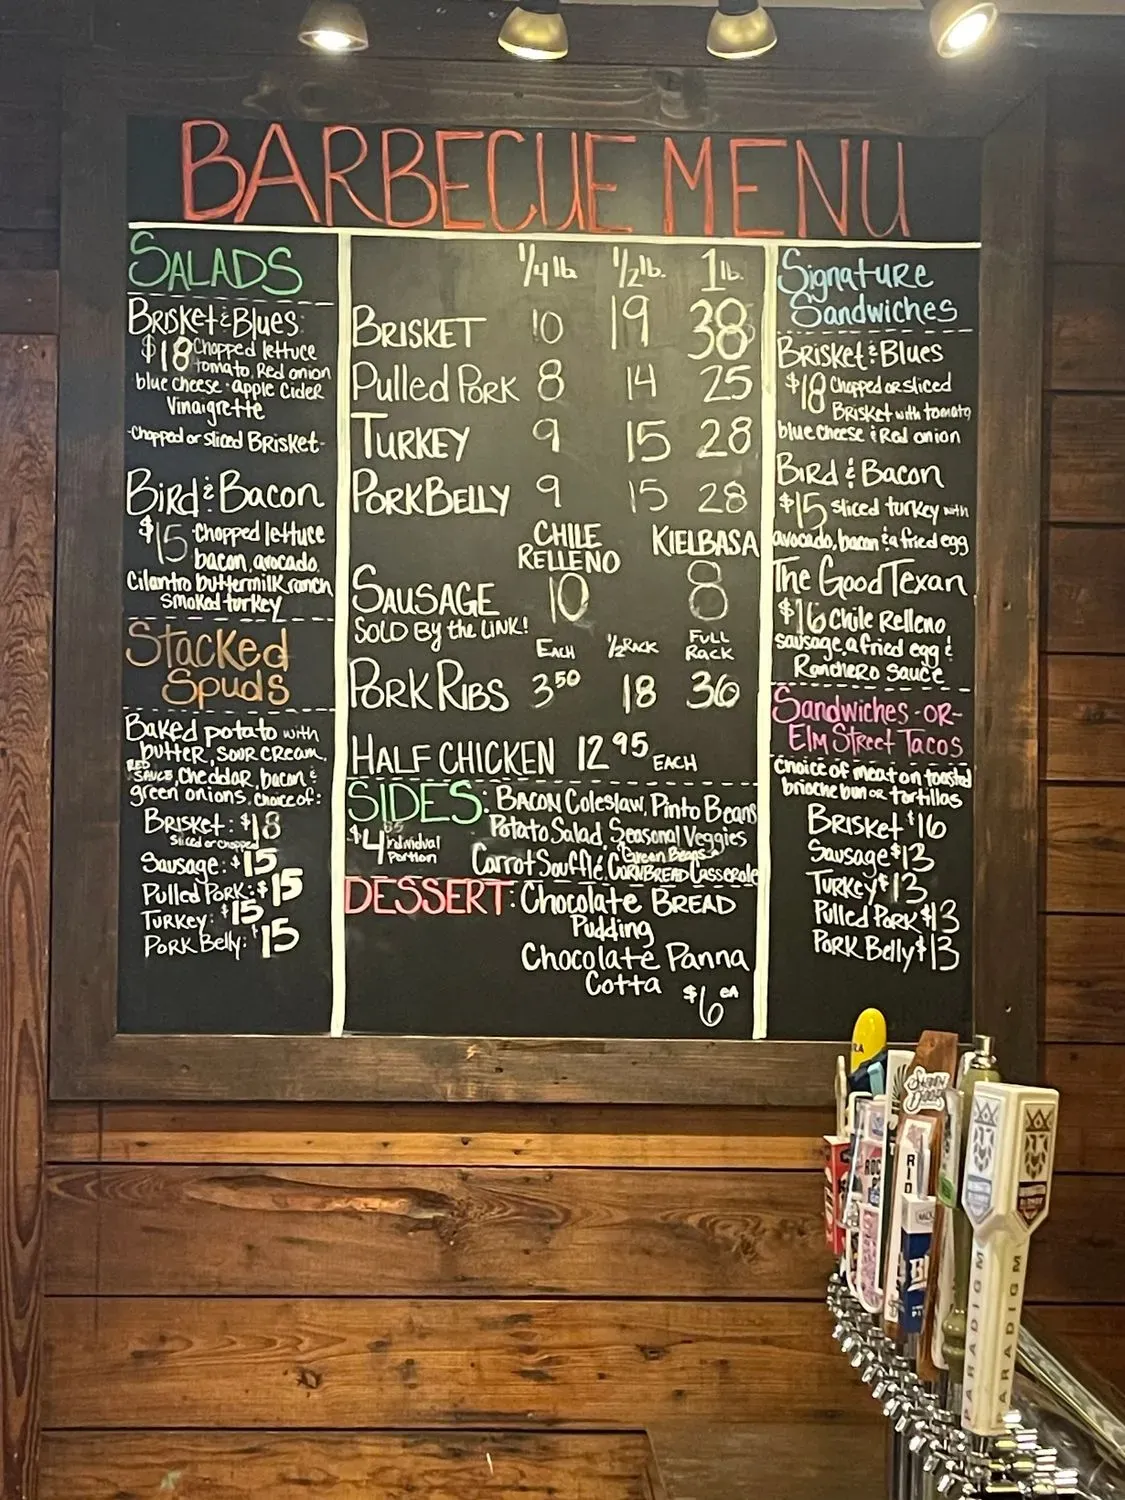 BARBECUE MENU
SALADS
BRisket & Blues
$18 Chopped lettuce
tomato, Red onion
blue cheese · apple CideR
Vinaigrette
-Chopped or sliced BRisket-
BiRd & Bacon
$15 Chopped lettuce
bacon, avocado
Cilantro buttermilk ranch
smoked turkey
Stacked
Spuds
Baked potato with
butter, sour cream,
RED
SAUCE, cheddar, bacon &
green onions. choice of:
BRisket: $18
Sliced or chopped
Sausage: $15
Pulled PoRk: $15
TURKEY: $15
PoRk Belly: $15
1/4 lb 1/2 lb. 1 lb.
BRISKET 10 19 38
Pulled PoRk 8 14 25
TURKEY 9 15 28
PORKBELLY 9 15 28
CHILE RELLENO KIELBASA
SAUSAGE 10 8
SOLD By the LINK!
EACH 1/2 RACK FULL RACK
PORK RIBS 3 50 18 36
HALF CHICKEN 12 95 EACH
SIDES: BACON Coleslaw, Pinto Beans
Potato Salad, Seasonal Veggies
Green Beans
$4 Individual Portion
Carrot Soufflé, CORNBREAD Casserole
DESSERT: Chocolate BREAD
Pudding
Chocolate Panna
Cotta $6 EA
Signature
Sandwiches
BRisket & Blues
$18 Chopped or sliced
BRisket with tomato
blue cheese & Red onion
BiRd & Bacon
$15 sliced turkey with
avocado, bacon & a fried egg
The Good Texan
$16 Chile Relleno
sausage, a fried egg &
RancheRo Sauce
Sandwiches -OR-
Elm Street Tacos
choice of meat on toasted
brioche bun or tortillas
BRisket $16
Sausage $13
TuRkey $13
Pulled PoRk $13
PoRk Belly $13
PARADIGM
PARADIGM